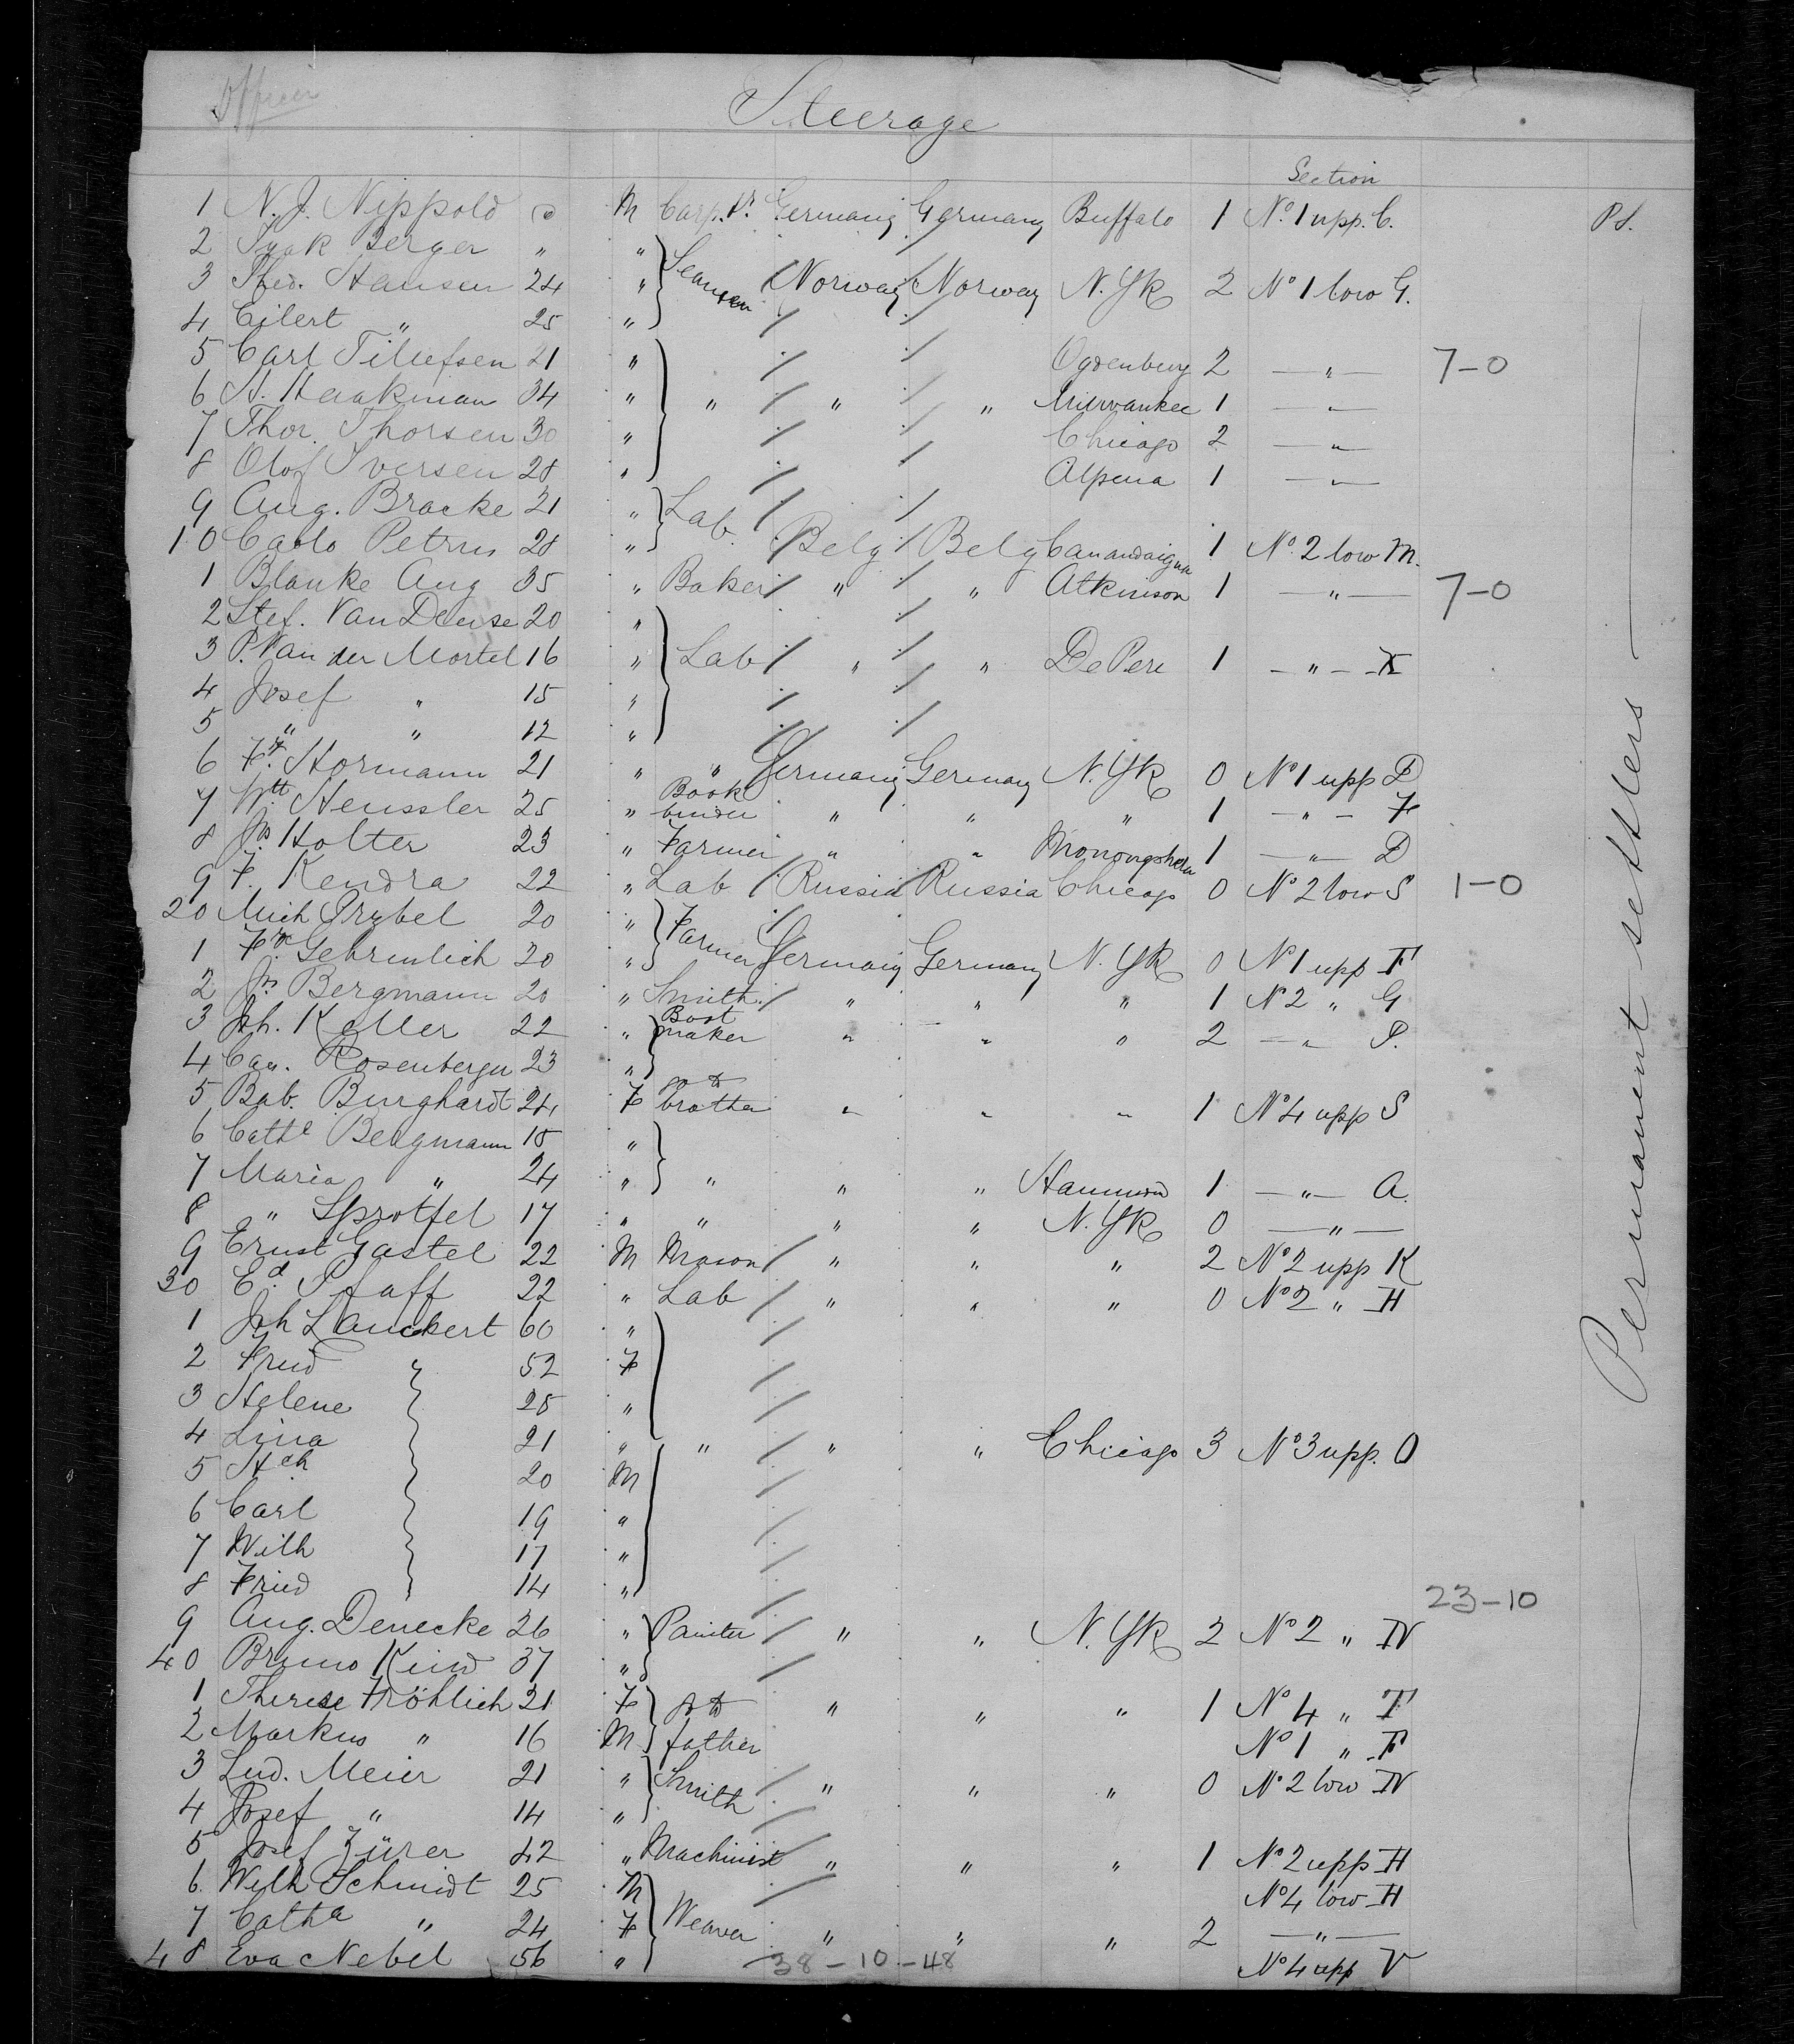 Steerage
Section
1 N. J. Nippold M Carp. Germany Germany Buffalo 1 No. 1 upp. C. P S.
2 Isak Berger " "
3 Theo. Hansen 24 " Seamen Norway Norway N. Yk 2 No 1 low G.
4 Eilert " 25 "
5 Carl Tillefsen 21 " Ogdenburg 2 — " — 7-0
6 H. Haakman 34 " " " " Milwaukee 1 — " —
7 Thor. Thorsen 30 " Chicago 2 — " —
8 Olof Iversen 28 " Alpena 1 — " —
9 Aug. Bracke 21 " Lab.
10 Carlo Petrus 28 " Belg Belg Canandaigua 1 No. 2 low M.
1 Blanke Aug 35 " Baker " " Atkinson 1 — " — 7-0
2 Stef. Van Deuse 20 "
3 P. Van der Mortel 16 " Lab " " De Pere 1 — " — X
4 Josef " 15 "
5 " " 12 "
6 Hormann 21 " " Germany Germany N. Yk 0 No 1 upp D
7 Heussler 25 " Book binder " " " 1 — " — F
8 Holter 23 " Farmer " " Monongohela 1 — " — D
9 F. Kendra 22 " Lab Russia Russia Chicago 0 No 2 low S 1-0
20 Mich Prybel 20 " Farmer
1 Gebrenlich 20 " Germany Germany N. Yk 0 No 1 upp F
2 Bergmann 20 " Smith " " " 1 No 2 " G
3 Joh. Keller 22 " Boot maker " " " 2 — " — P.
4 Rosenberger 23 "
5 Bab. Burghardt 24 F brother " " " 1 No 4 upp S
6 Cathe Bergmann 18 "
7 Maria " 24 " " " " Hammond 1 — " — A.
8 " Sprottel 17 " " " " N. Yk 0 — " —
9 Ernst Gastel 22 M Mason " " " 2 No 2 upp K
30 Ed. Pfaff 22 " Lab " " " 0 No 2 " H
1 Joh Lanckert 60 "
2 Fried " 52 F
3 Helene 28 "
4 Lina 21 " " " " Chicago 3 No 3 upp. O
5 Hch 20 M
6 Carl 19 "
7 Wilh 17 "
8 Fried 14 "
23-10
9 Aug. Denecke 26 " Painter " " N. Yk 2 No 2 " N
40 Bruno Kind 37 "
1 Therese Fröhlich 21 F to " " " 1 No 4 " T
2 Markus " 16 M father No 1 " F
3 Lud. Meier 21 " Smith " " " 0 No 2 low N
4 Josef " 14 "
5 Josef Zürer 42 " Machinist " " " 1 No 2 upp H
6. Wilh Schmidt 25 M Weaver No 4 low H
7 Catha " 24 F " " " 2 — " —
48 Eva Nebel 56 " 38-10-48 No 4 upp V
Permanent settlers